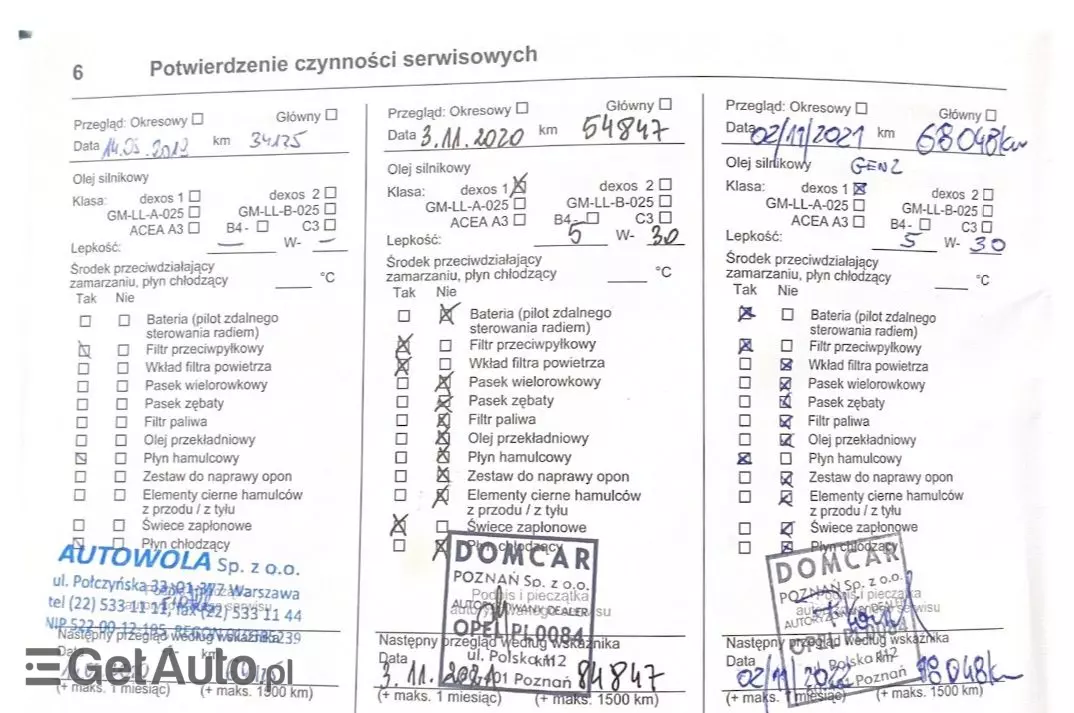 6 Potwierdzenie czynności serwisowych
Przegląd: Okresowy Główny
Data 14.05.2019 km 34175
Olej silnikowy
Klasa: dexos 1 dexos 2
GM-LL-A-025 GM-LL-B-025
ACEA A3 B4 - C3
Lepkość: — W- —
Środek przeciwdziałający
zamarzaniu, płyn chłodzący °C
Tak Nie
Bateria (pilot zdalnego
sterowania radiem)
Filtr przeciwpyłkowy
Wkład filtra powietrza
Pasek wielorowkowy
Pasek zębaty
Filtr paliwa
Olej przekładniowy
Płyn hamulcowy
Zestaw do naprawy opon
Elementy cierne hamulców
z przodu / z tyłu
Świece zapłonowe
Płyn chłodzący
AUTOWOLA Sp. z o.o.
ul. Połczyńska 33, 01-377 Warszawa
tel (22) 533 11 11, fax (22) 533 11 44
Następny przegląd według wskaźnika
Data km
(+ maks. 1 miesiąc) (+ maks. 1500 km)
Przegląd: Okresowy Główny
Data 3.11.2020 km 54847
Olej silnikowy
Klasa: dexos 1 dexos 2
GM-LL-A-025 GM-LL-B-025
ACEA A3 B4 - C3
Lepkość: 5 W- 30
Środek przeciwdziałający
zamarzaniu, płyn chłodzący °C
Tak Nie
Bateria (pilot zdalnego
sterowania radiem)
Filtr przeciwpyłkowy
Wkład filtra powietrza
Pasek wielorowkowy
Pasek zębaty
Filtr paliwa
Olej przekładniowy
Płyn hamulcowy
Zestaw do naprawy opon
Elementy cierne hamulców
z przodu / z tyłu
Świece zapłonowe
Płyn chłodzący
DOMCAR
POZNAŃ Sp. z o.o.
Podpis i pieczątka
AUTORYZOWANY DEALER
OPEL PL0084
Następny przegląd według wskaźnika
ul. Polska 112
Data 3.11.2021 km 84847
Poznań
(+ maks. 1 miesiąc) (+ maks. 1500 km)
Przegląd: Okresowy Główny
Data 02/11/2021 km 68048km
Olej silnikowy GEN2
Klasa: dexos 1 dexos 2
GM-LL-A-025 GM-LL-B-025
ACEA A3 B4 - C3
Lepkość: 5 W- 30
Środek przeciwdziałający
zamarzaniu, płyn chłodzący °C
Tak Nie
Bateria (pilot zdalnego
sterowania radiem)
Filtr przeciwpyłkowy
Wkład filtra powietrza
Pasek wielorowkowy
Pasek zębaty
Filtr paliwa
Olej przekładniowy
Płyn hamulcowy
Zestaw do naprawy opon
Elementy cierne hamulców
z przodu / z tyłu
Świece zapłonowe
Płyn chłodzący
DOMCAR
POZNAŃ Sp. z o.o.
Podpis i pieczątka
Następny przegląd według wskaźnika
Polska 112
Data 02/11/2022 km 98048km
Poznań
(+ maks. 1 miesiąc) (+ maks. 1500 km)
GetAuto.pl